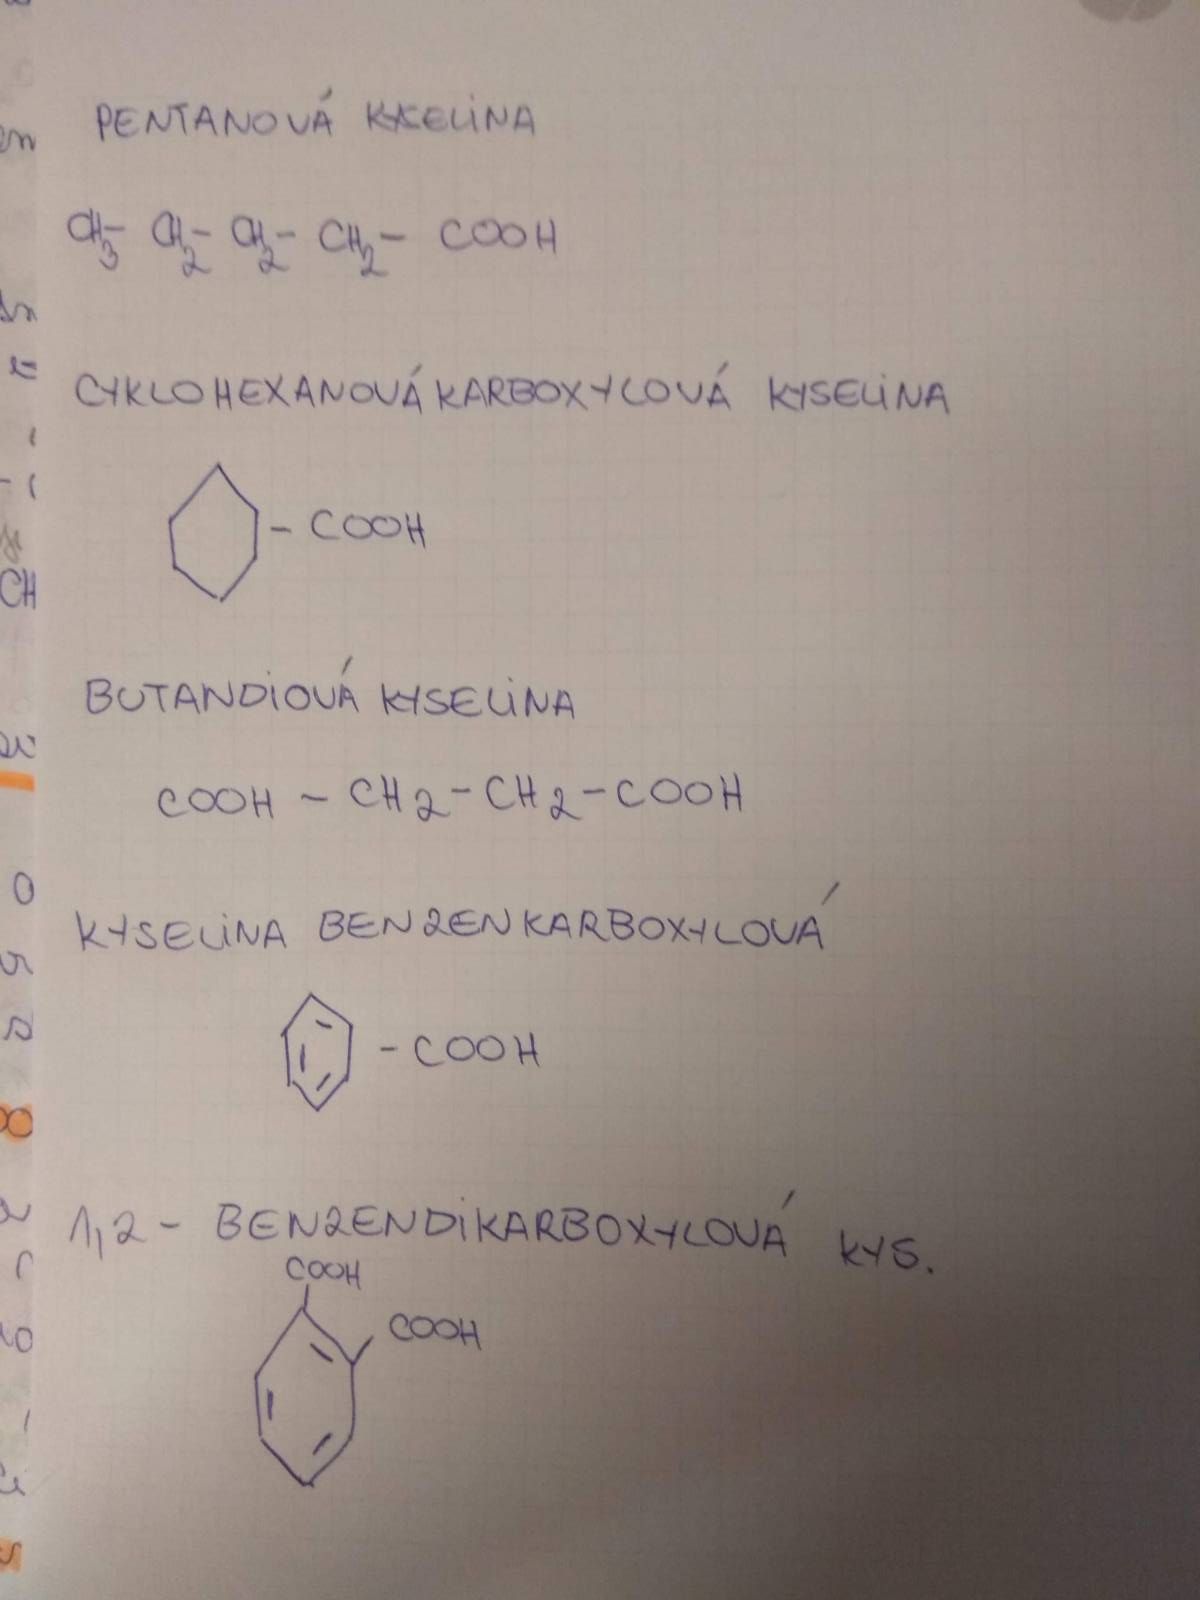 PENTANOVÁ KYSELINA
CH3- CH2- CH2- CH2- COOH
CYKLOHEXANOVÁ KARBOXYLOVÁ KYSELINA
- COOH
BUTANDIOVÁ KYSELINA
COOH - CH2 - CH2 - COOH
KYSELINA BENZENKARBOXYLOVÁ
- COOH
1,2 - BENZENDIKARBOXYLOVÁ KYS.
COOH
COOH